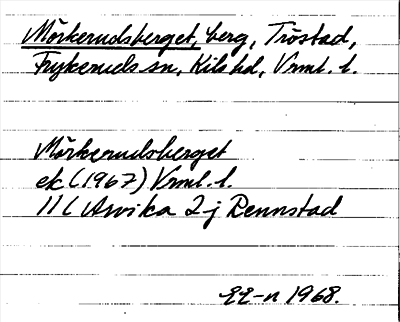 Mörkerudsberget, berg, Tröstad,
Frykeruds sn, Kils hd, Vrml. l.
Mörkerudsberget
ek (1967) Vrml. l.
11 C Arvika 2 j Rennstad
EE-n 1968.